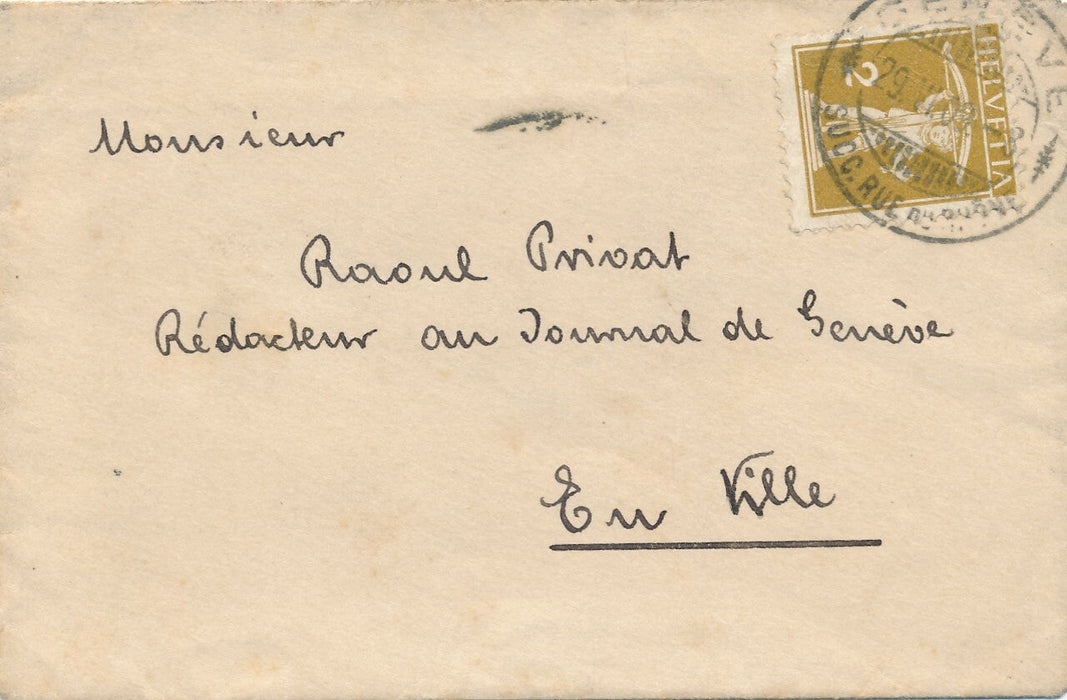 GENÈVE
HELVETIA
2
SUCC. RUE DU RHÔNE
Monsieur
Raoul Privat
Rédacteur au Journal de Genève
En Ville